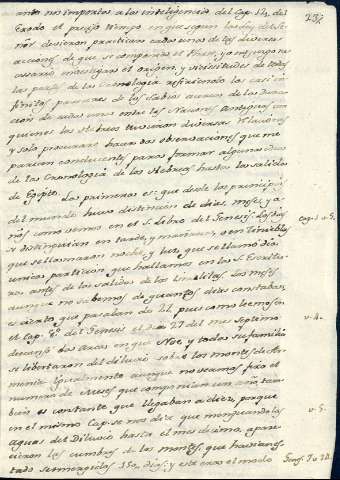 anto no importa a la inteligencia del Cap. 12 del
Exodo el preciso tiempo en que segun la Ley del Se-
ñor devieron practicar cada una de las diversas
acciones de que se componia el Phase, ya no juzgo ne-
cesario investigar el origen, y vicisitudes de todas
las partes de la Cronologia refiriendo los casi in-
finitos pareceres de los Sabios acerca de la dura-
cion de cada una entre las Naciones antiguas con
quienes los Hebreos tuvieron diversas
y solo procurare hacer dos observaciones que me
parecen conducentes para formar alguna idea
de la Cronologia de los Hebreos hasta la salida
de Egipto. La primera es: que desde los principios
del mundo huvo distincion de dias, meses, y a-
ños como vemos en el S. Libro del Genesis. Los dias
se distinguian en tarde, y mañana, o en tinieblas
que se llamaron noche, y luz, que se llamò dia
unica particion que hallamos en la S. Escritu-
ra, antes de la salida de los Israelitas. Los meses
aunque no sabemos de quantos dias constaban,
es cierto que pasaban de 27, pues como leemos en
el Cap. 8º del Genesis el dia 27 del mes septimo
descansò la Arca en que Noe, y toda su familia
se libertaron del diluvio sobre los montes de Ar-
menia. Igualmente aunque no veamos fixo el
numero de Meses que componian un año, tam-
bien es constante que llegaban a diez, porque
en el mismo Cap. se nos dize que menguando las
aguas del Diluvio hasta el mes decimo, apare-
cieron las cumbres de los montes, que havian es-
tado sumergidas 150 dias; y este era el modo
237
Cap. 1. v. 5.
v. 4.
v. 5.
Genes. 7. v. 24.